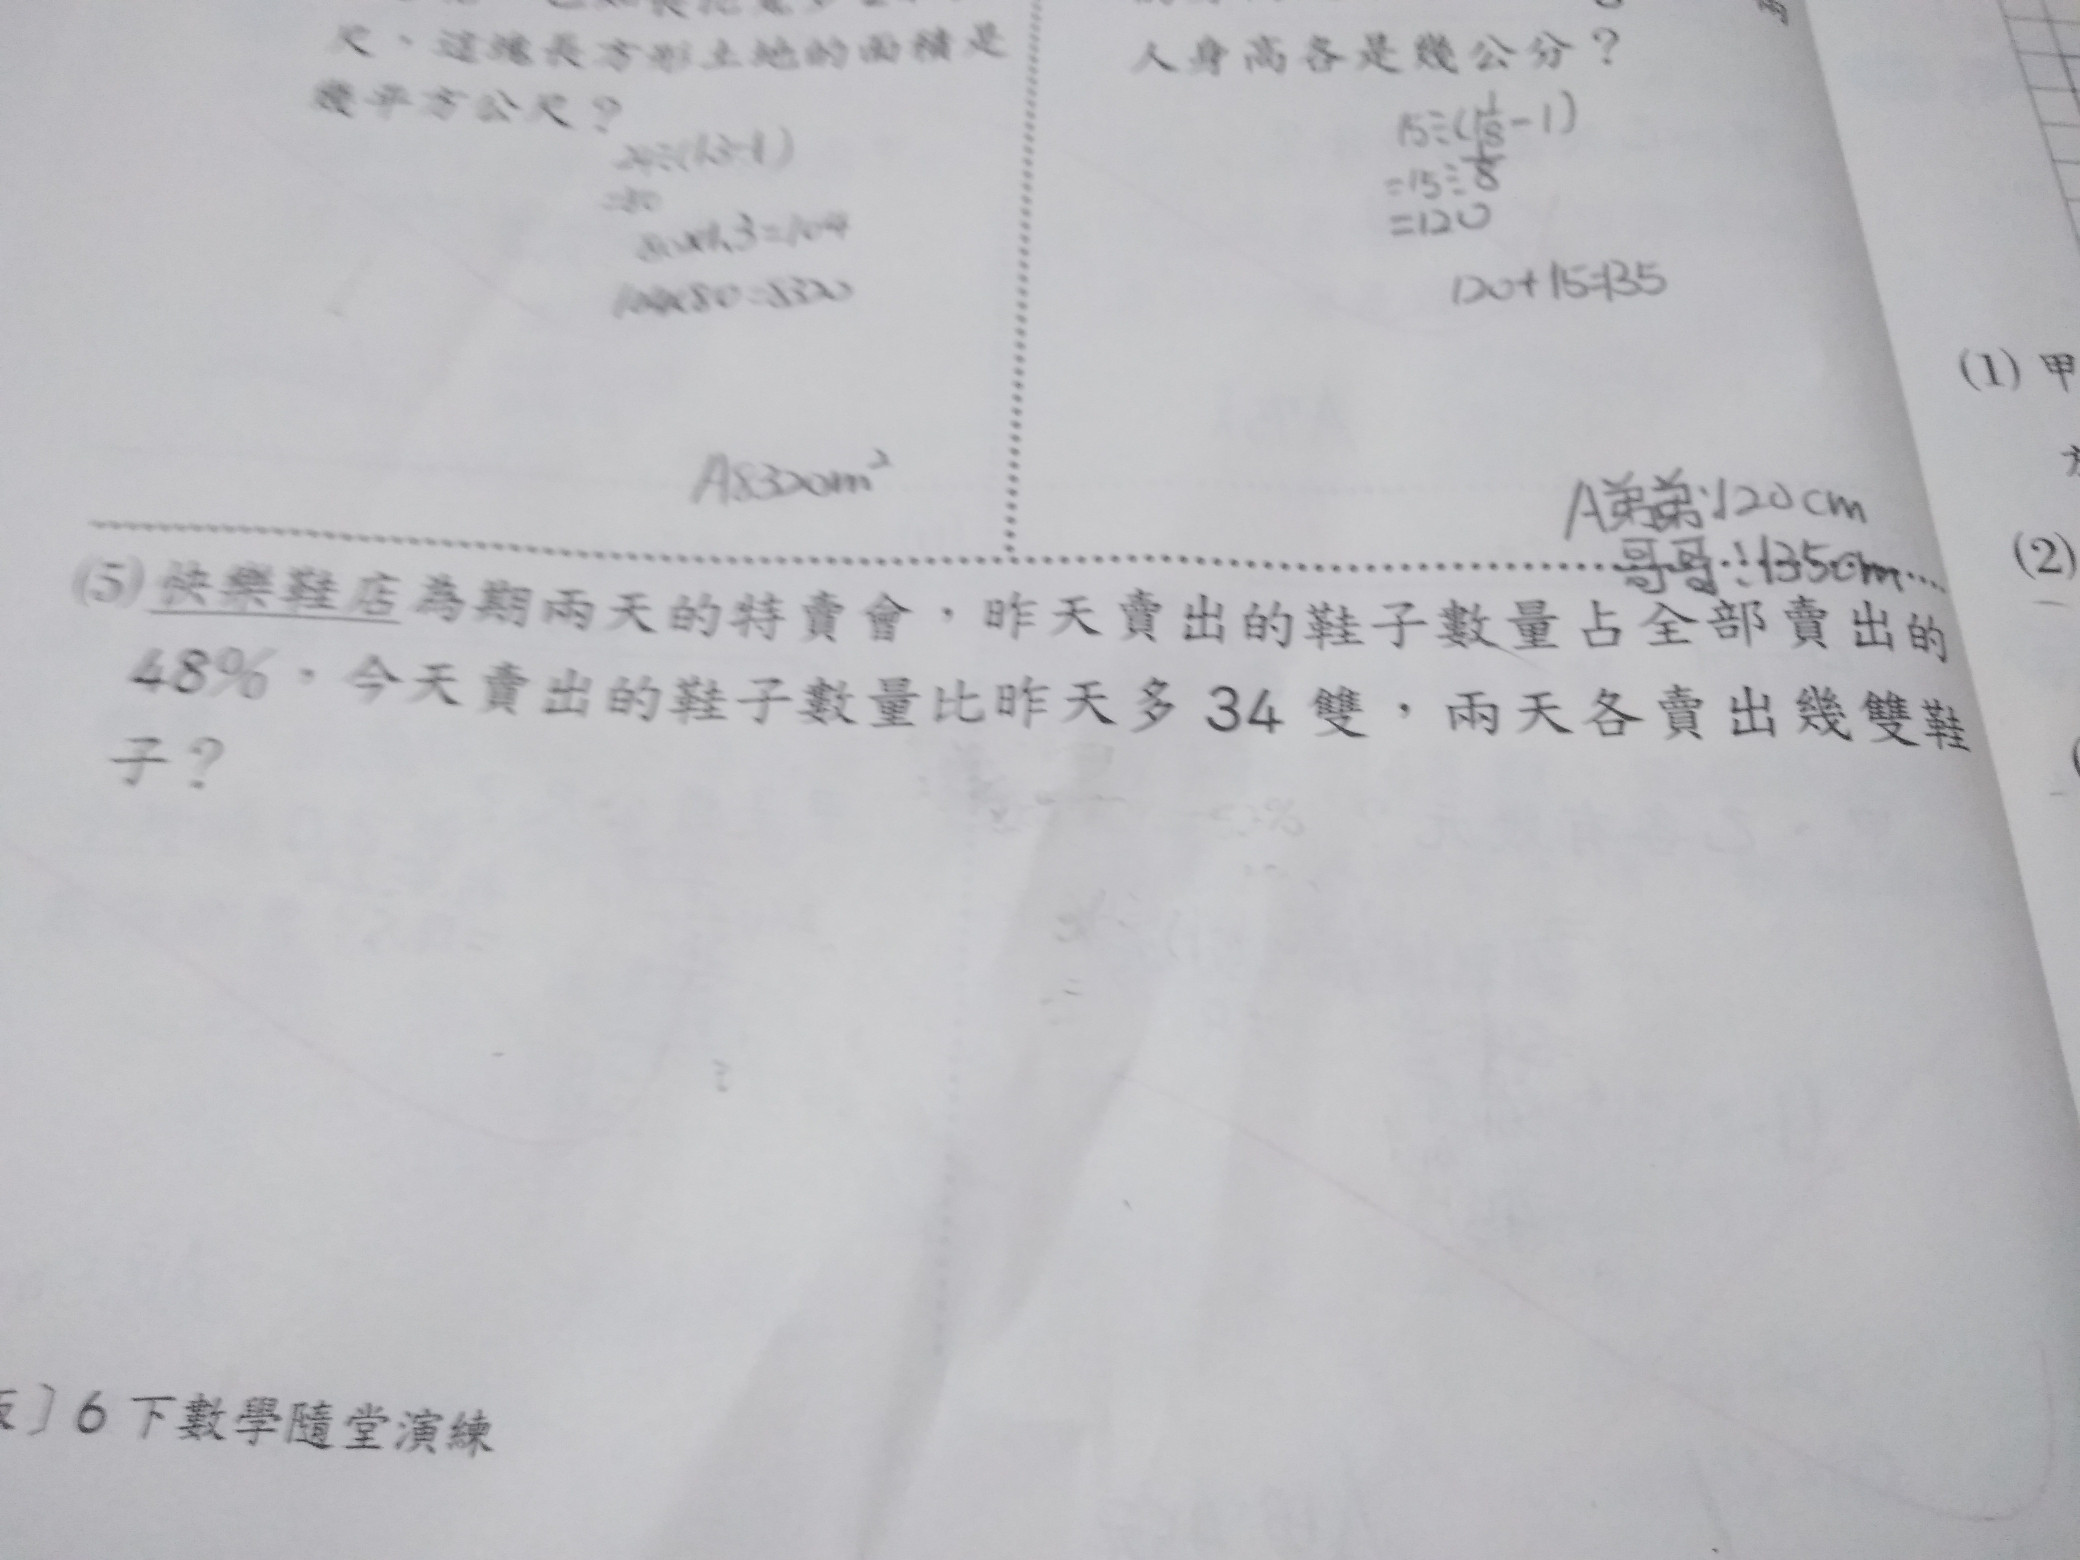 尺、這塊長方形土地的面積是
幾平方公尺？
24÷(1.3-1)
=80
80×1.3=104
104×80=8320
A8320m²
人身高各是幾公分？
15÷(1 1/8-1)
=15÷1/8
=120
120+15=135
A弟弟:120cm
哥哥:135cm
(5)快樂鞋店為期兩天的特賣會，昨天賣出的鞋子數量占全部賣出的
48%，今天賣出的鞋子數量比昨天多34雙，兩天各賣出幾雙鞋
子？
〕6下數學隨堂演練
(1)甲
(2)